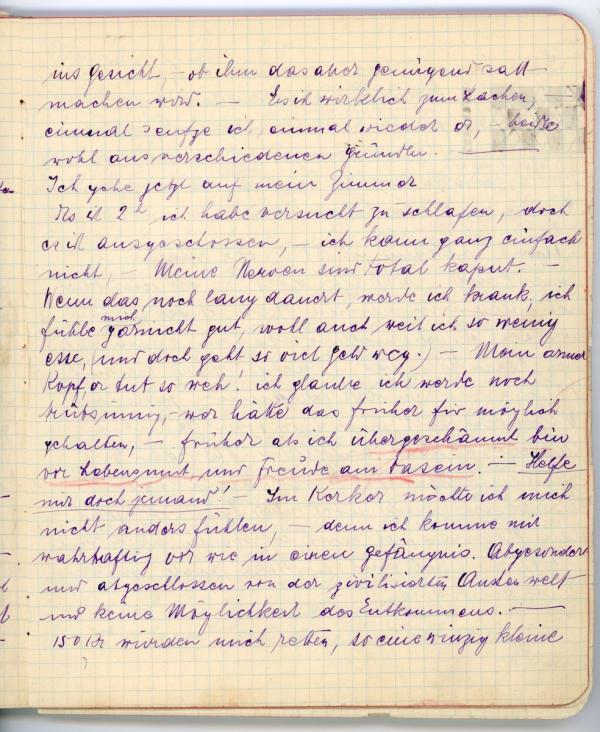 ins Gesicht, – ob ihm das aber genügend satt
machen wird. – Es ist wirklich zum Lachen, –
einmal seufze ich, einmal wieder er, – beide
wohl aus verschiedenen Gründen.
Ich gehe jetzt auf mein Zimmer
Es ist 2h, ich habe versucht zu schlafen, doch
es ist ausgeschossen, – ich kann ganz einfach
nicht, – Meine Nerven sind total kaput. –
Wenn das noch lang dauert, werde ich krank, ich
fühle mich garnicht gut, wohl auch weil ich so wenig
esse, (und doch geht so viel Geld weg.) – Mein armer
Kopf er tut so weh! ich glaube ich werde noch
trübsinnig, – wer hätte das früher für möglich
gehalten, – früher als ich übergeschäumt bin
vor Lebensmut und Freude am Dasein. – Helfe
mir doch jemand! – Im Kerker möchte ich mich
nicht anders fühlen, – denn ich komme mir
wahrhaftig vor wie in einen Gefängnis. Abgesondert
und abgeschlossen von der zivilisierten Aussenwelt
und keine Möglichkeit des Entkommens. –
150 Kr würden mich retten, so eine winzig kleine